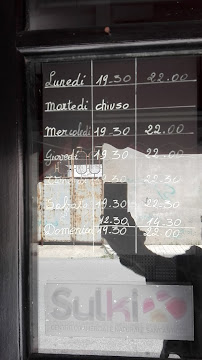 Lunedì 19.30 22.00
Martedì chiuso
Mercoledì 19.30 22.00
Giovedì 19.30 22.00
19.30 22.30
Sabato 19.30 22.30
12.30 14.30
Domenica 19.30 22.00
Sulki